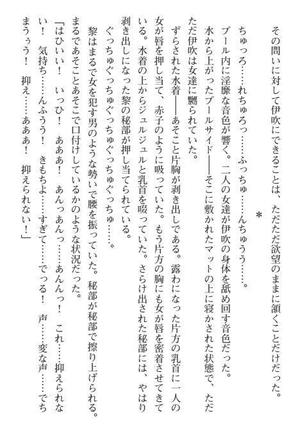 その問いに対して伊吹にできることは、ただただ欲望のままに頷くことだけだった。
＊
ちゅっろ……れちゅっ……ふっちゅ……んちゅうう……。
プール内に淫靡な音色が響く。二人の女達が伊吹の身体を舐め回す音色だった。
水から上がったプールサイド――そこに敷かれたマットの上に寝かされた状態で、ただ
ただ伊吹は女達に嬲られていた。
ずらされた水着――あそこと片胸が剥き出しである。露わになった片方の乳首に一人の
女が唇を押し当て、赤子のように吸っていた。もう片方の胸にも女が唇を密着させてき
ている。水着の上からジュルジュルと乳首を啜っていた。さらけ出された秘部には、やはり
剥き出しになった黎の秘部が押し当てられている。
ぐっちゅぐっちゅぐっちゅぐっちゅ……。
黎はまるで女を犯す男のような勢いで腰を振っていた。秘部が秘部で擦り上げられる。
まるであそことあそこで口付けしているかのような状況だった。
「はひいい！　いっひ！　あああ！　あんっあんっ……あんんっ！　これ……抑えられな
い！　気持ち……んふうう！　きもちよ……すぎて……でっる！　声……変な声……でち
まうぅう！　抑え……あああ！　抑えられない！」